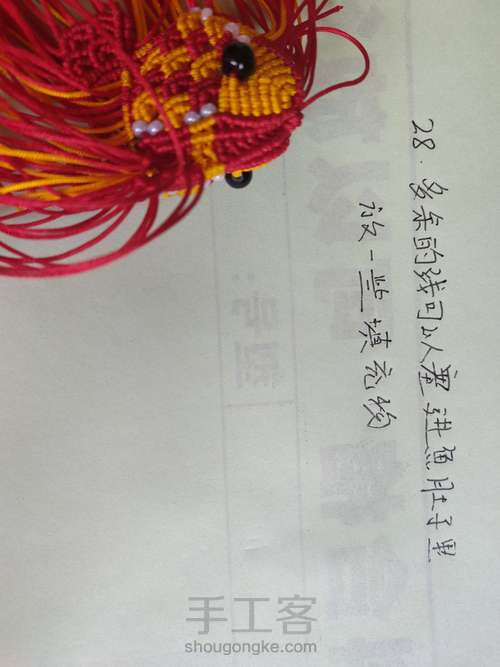 28.多余的线可以塞进鱼肚子里
放一些填充物
手工客
shougongke.com